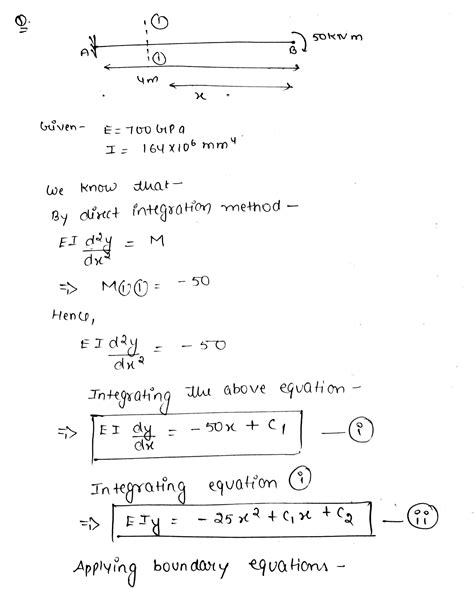 Q.
①
A
B
50KNm
①
4m
x
Given - E = 700 GPa
I = 164×10⁶ mm⁴
We know that -
By direct integration method -
EI d²y/dx² = M
=> M①① = -50
Hence,
EI d²y/dx² = -50
Integrating the above equation -
=> EI dy/dx = -50x + C₁ — ⓘ
Integrating equation ⓘ
=> EIy = -25x² + C₁x + C₂ — ⓘⓘ
Applying boundary equations -